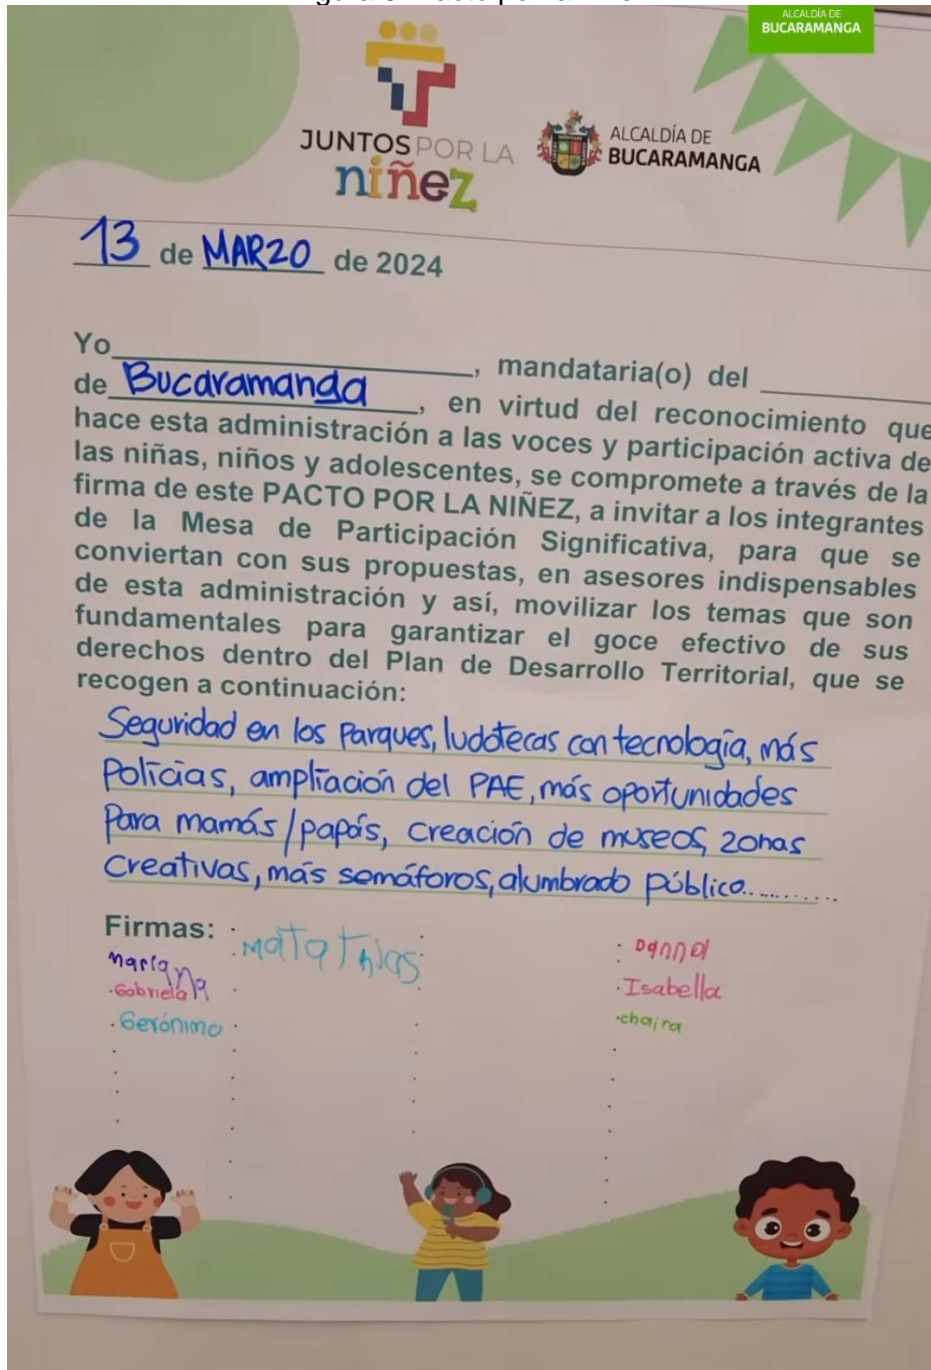 ALCALDÍA DE
BUCARAMANGA
JUNTOS POR LA
niñez
ALCALDÍA DE
BUCARAMANGA
13 de MARZO de 2024
Yo____________________, mandataria(o) del __________
de Bucaramanga, en virtud del reconocimiento que
hace esta administración a las voces y participación activa de
las niñas, niños y adolescentes, se compromete a través de la
firma de este PACTO POR LA NIÑEZ, a invitar a los integrantes
de la Mesa de Participación Significativa, para que se
conviertan con sus propuestas, en asesores indispensables
de esta administración y así, movilizar los temas que son
fundamentales para garantizar el goce efectivo de sus
derechos dentro del Plan de Desarrollo Territorial, que se
recogen a continuación:
Seguridad en los Parques, ludotecas con tecnología, más
Policías, ampliación del PAE, más oportunidades
Para mamás/papás, creación de museos, zonas
Creativas, más semáforos, alumbrado público..........
Firmas:
Mariana
Gabriela
Gerónimo
Isabella
chaira